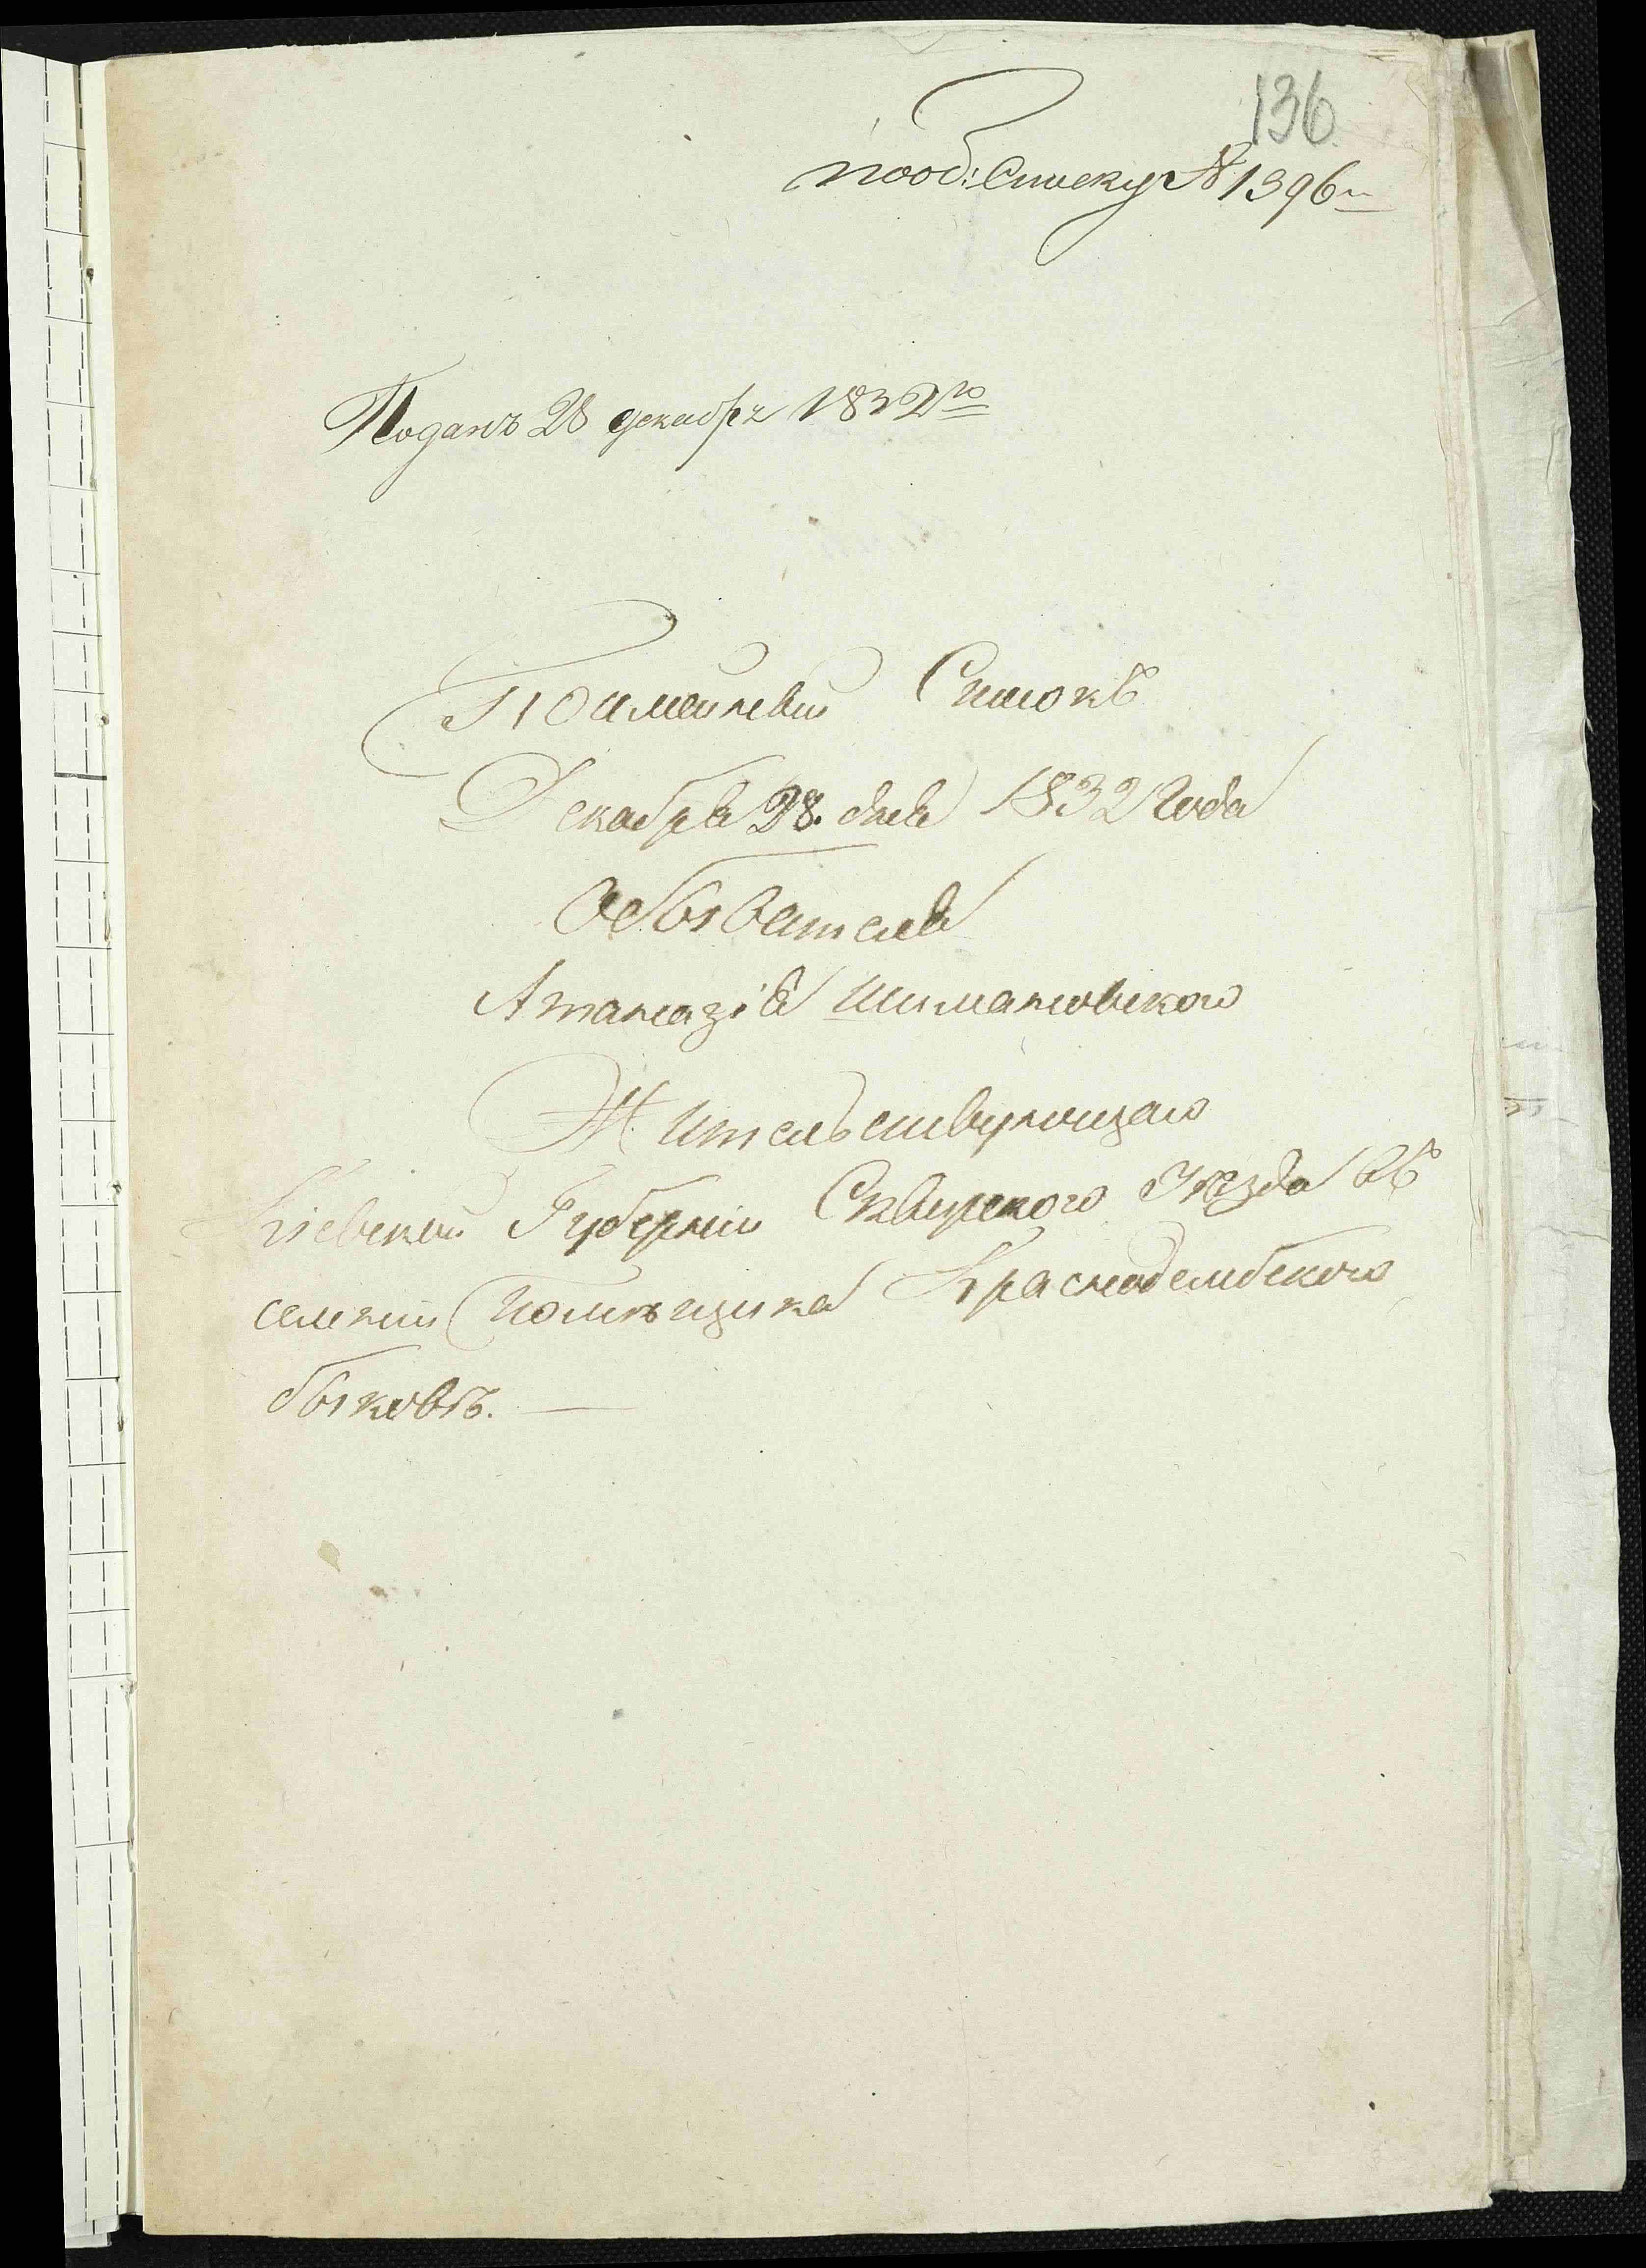 136
пооб: Списку № 1396м
Поданъ 28 декабря 1832го
Поимейный Списокъ
Декабря 28. дня 1832 года
Обывателя
Атаназія Шимановского
Жительствующаго
Кіевской Губерніи Сквирского Уезда въ
селеніи Помѣщика Краснодембского
быковъ.